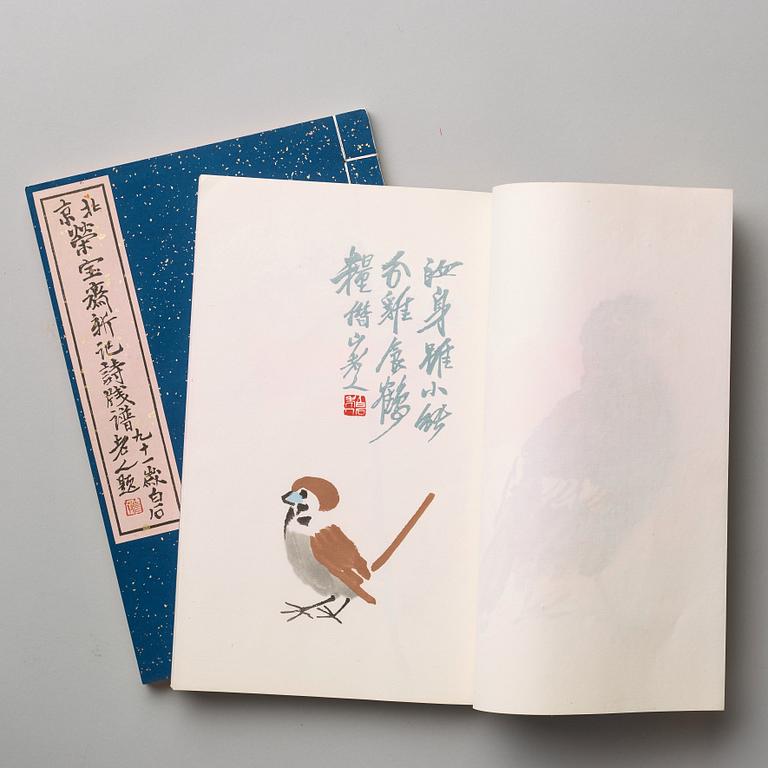 北京
榮宝齋新记詩牋譜
九十一歲白石
老人題
汝身雖小能
分雞食鶴
糧借山老人